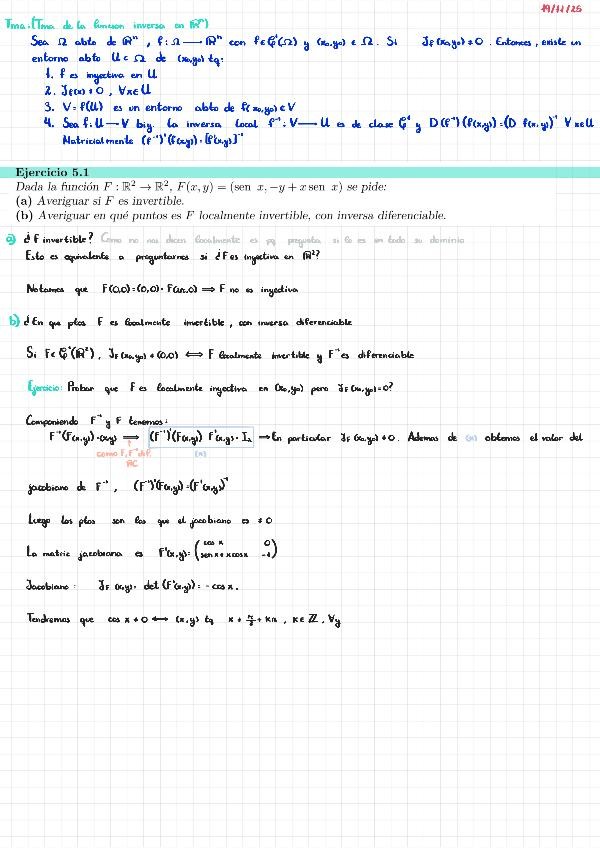 19/11/25
Tma: (Tma de la funcion inversa en ℝⁿ)
Sea Ω abto de ℝⁿ, f: Ω → ℝⁿ con f∈𝒞¹(Ω) y (x₀,y₀) ∈ Ω. Si J_f(x₀,y₀) ≠ 0. Entonces, existe un
entorno abto U ⊂ Ω de (x₀,y₀) tq:
1. f es inyectiva en U
2. J_f(x) ≠ 0, ∀x∈U
3. V = f(U) es un entorno abto de f(x₀,y₀) ∈ V
4. Sea f: U → V biy. la inversa local f⁻¹: V → U es de clase 𝒞¹ y D(f⁻¹)(f(x,y)) = (D f(x,y))⁻¹ ∀x∈U
Matricialmente (f⁻¹)'(f(x,y)) = [f'(x,y)]⁻¹
Ejercicio 5.1
Dada la función F : ℝ² → ℝ², F(x, y) = (sen x, −y + x sen x) se pide:
(a) Averiguar si F es invertible.
(b) Averiguar en qué puntos es F localmente invertible, con inversa diferenciable.
a) ¿F invertible? Como no nos dicen localmente es pq pregunta si lo es en todo su dominio
Esto es equivalente a preguntarnos si ¿F es inyectiva en ℝ²?
Notamos que F(0,0) = (0,0) = F(π,0) ⟹ F no es inyectiva
b) ¿En que ptos F es localmente invertible, con inversa diferenciable
Si F∈𝒞¹(ℝ²), J_F(x₀,y₀) ≠ (0,0) ⟺ F localmente invertible y F⁻¹ es diferenciable
Ejercicio: Probar que F es localmente inyectiva en (x₀,y₀) pero J_F(x₀,y₀)=0?
Componiendo F⁻¹ y F tenemos:
F⁻¹(F(x,y)) = (x,y) ⟹ (F⁻¹)'(F(x,y)) F'(x,y) = I₂ → En particular J_F(x₀,y₀) ≠ 0. Ademas de (*) obtemos el valor del
como F, F⁻¹ dif. (*)
RC
jacobiano de F⁻¹, (F⁻¹)'(F(x,y)) = (F'(x,y))⁻¹
Luego los ptos son los que el jacobiano es ≠ 0
La matriz jacobiana es F'(x,y) = (cos x 0
sen x + x cos x -1)
Jacobiano: J_F(x,y) = det(F'(x,y)) = -cos x.
Tendremos que cos x ≠ 0 ⟷ (x,y) tq x ≠ π/2 + kπ, k∈ℤ, ∀y